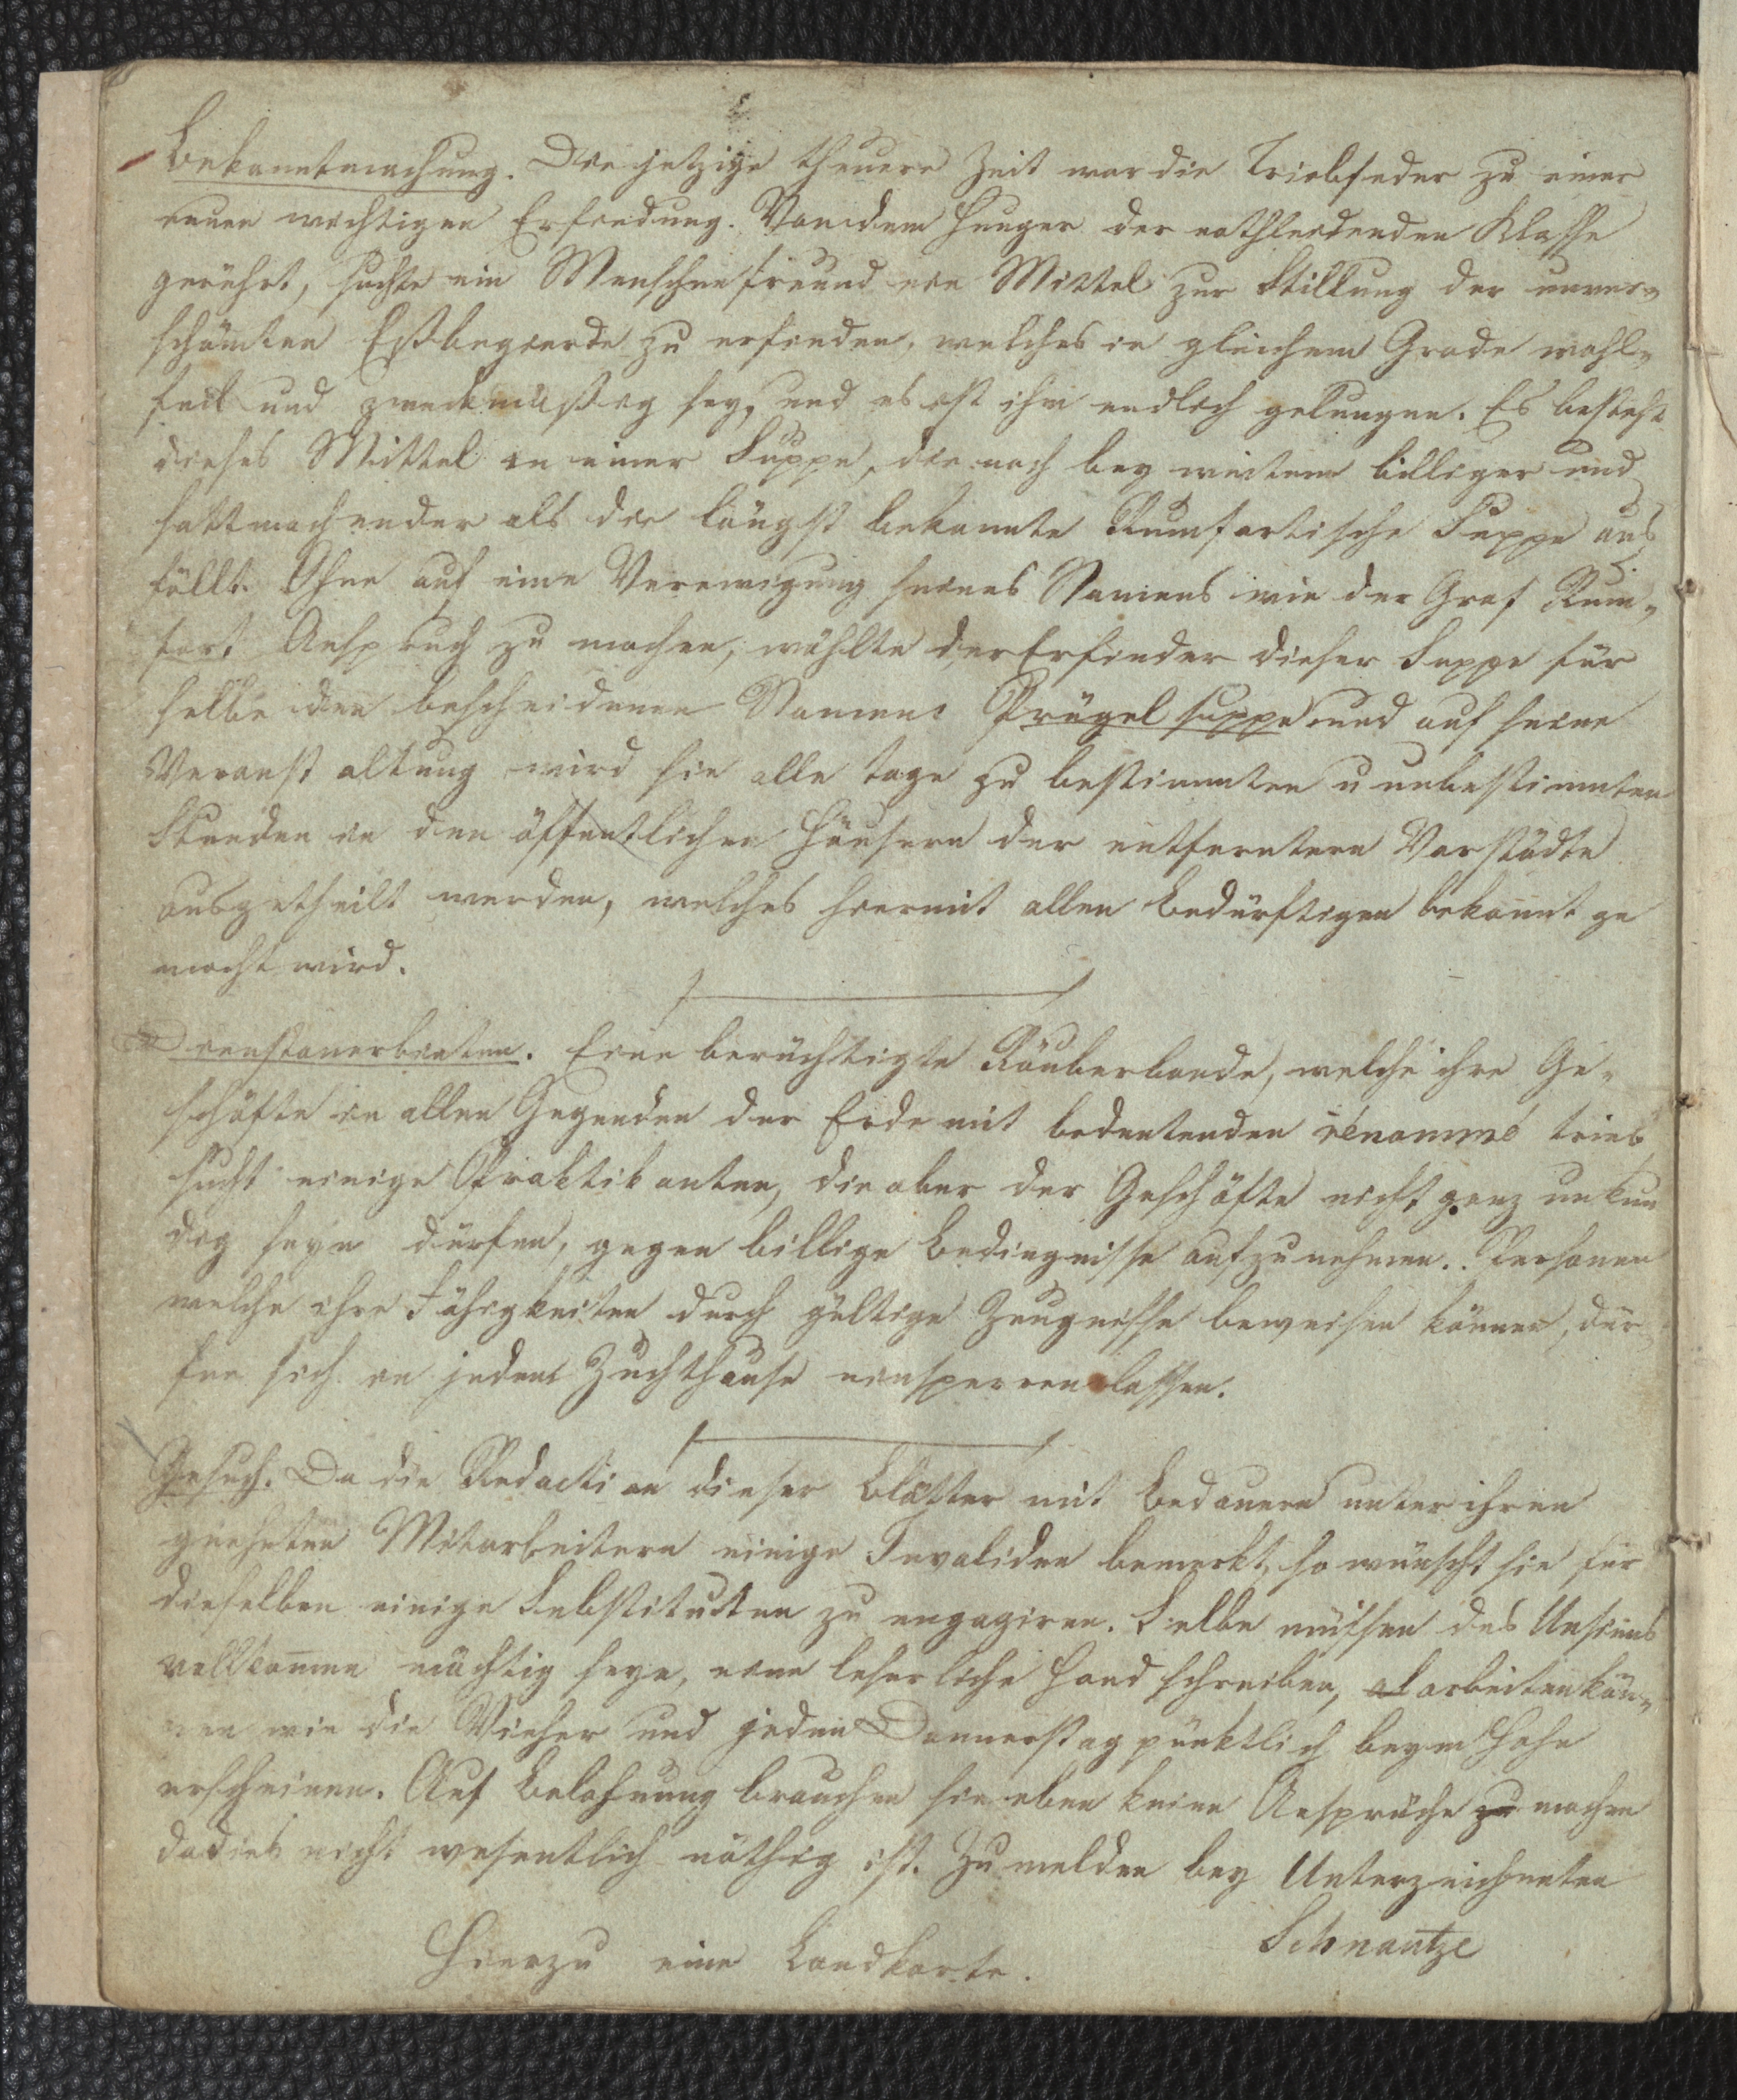 Bekanntmachung. Die jetzige theuere Zeit war die Triebfeder zu einer
neuen wichtigen Erfindung. Von dem Hunger der nothleidenden Klasse
gerührt, suchte ein Menschenfreund ein Mittel zur Stillung der unver-
schämten Eßbegierde zu erfinden, welches in gleichem Grade wohl-
feil und zweckmäßig sey, und es ist ihm endlich gelungen. Es besteht
dieses Mittel in einer Suppe, die noch bey weitem billiger und
sattmachender als die längst bekannte Rumfortische Suppe aus
fällt. Ohne auf eine Verewigung seines Namens wie der Graf Rum-
fort Anspruch zu machen, wählte der Erfinder dieser Suppe für
selbe den bescheidenen Namens Prügelsuppe und auf seine
Veranstaltung wird sie alle Tage zu bestimmten u unbestimmten
Stunden in den öffentlichen Häusern der entferntern Vorstädte
ausgetheilt werden, welches hiermit allen Bedürftigen bekannt ge
macht wird.
Dienstanerbieten. Eine berüchtigte Räuberbande, welche ihre Ge-
schäfte in allen Gegenden der Erde mit bedeutenden rénommé trieb
sucht einige Praktikanten, die aber der Geschäfte nicht ganz unkun
dig seyn dürfen, gegen billige Bedingnisse aufzunehmen. Personen
welche ihre Fähigkeiten durch gültige Zeugnisse beweisen können, dür
fen sich in jedem Zuchthause einsperren lassen.
Gesuch. Da die Redaction dieser Blätter mit Bedauern unter ihren
geehrten Mitarbeitern einige Invaliden bemerkt, so wünscht sie für
dieselben einige Substituten zu engagiren. Selbe müssen des Unsinns
vollkommen mächtig seyn, eine leserliche Hand schreiben, arbeiten kön-
nen wie die Viecher und jeden Donnerstag pünktlich beym Hohe
erscheinen. Auf Belohnung brauchen sie eben keine Ansprüche zu machen
da dies nicht wesentlich nöthig ist. Zu melden bey Unterzeichneten
Schnautze
Hierzu eine Landkarte.